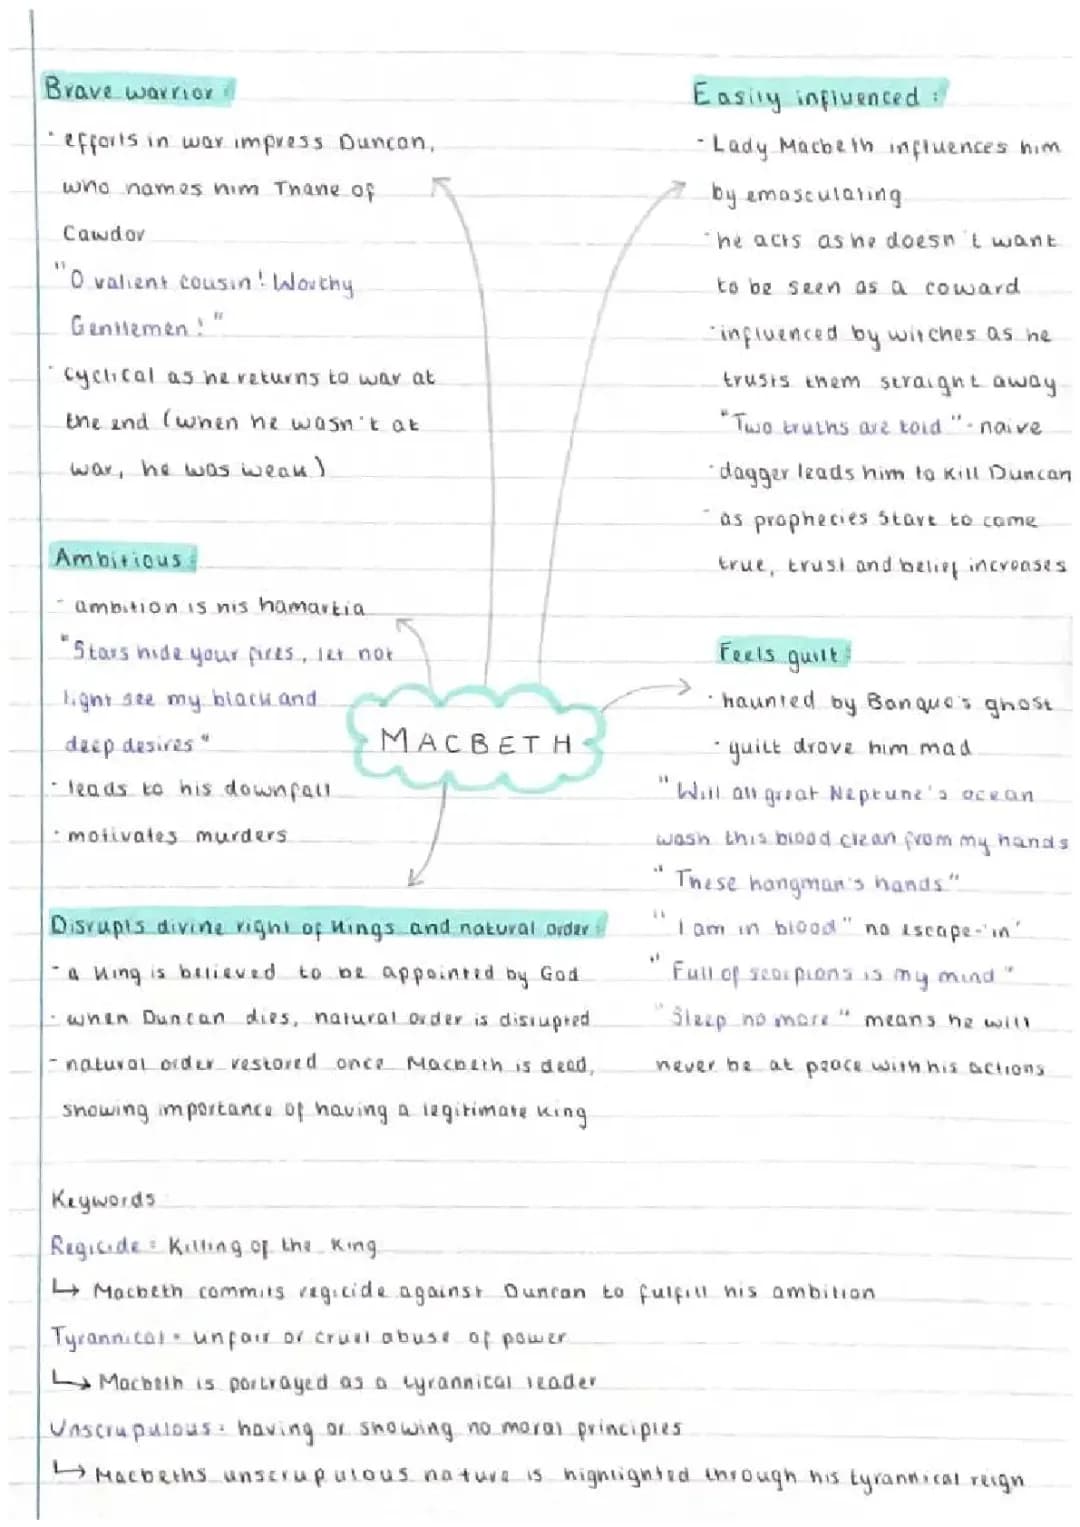 Brave warrior:
· efforts in war impress Duncan,
who names him Thane of
Cawdor
"O valient cousin! Worthy
Gentlemen!"
· cyclical as he returns to war at
the end (when he wasn't at
war, he was weak)
Ambitious:
- ambition is his hamartia
"Stars hide your fires, let not
light see my black and
deep desires"
· leads to his downfall
· motivates murders
Easily influenced:
- Lady Macbeth influences him
by emasculating
· he acts as he doesn't want
to be seen as a coward
· influenced by witches as he
trusts them straight away
"Two truths are told" - naive
· dagger leads him to kill Duncan
- as prophecies start to come
true, trust and belief increases
Feels guilt:
· haunted by Banquo's ghost
· guilt drove him mad
"Will all great Neptune's ocean
wash this blood clean from my hands
"These hangman's hands"
"I am in blood" no escape-'in'
"Full of scorpions is my mind"
"Sleep no more" means he will
never be at peace with his actions
MACBETH
Disrupts divine right of kings and natural order:
- a king is believed to be appointed by God
· when Duncan dies, natural order is disrupted
- natural order restored once Macbeth is dead,
showing importance of having a legitimate king
Keywords
Regicide = Killing of the King
↳ Macbeth commits regicide against Duncan to fulfill his ambition
Tyrannical = unfair or cruel abuse of power
↳ Macbeth is portrayed as a tyrannical leader
Unscrupulous = having or showing no moral principles
↳ Macbeths unscrupulous nature is highlighted through his tyrannical reign